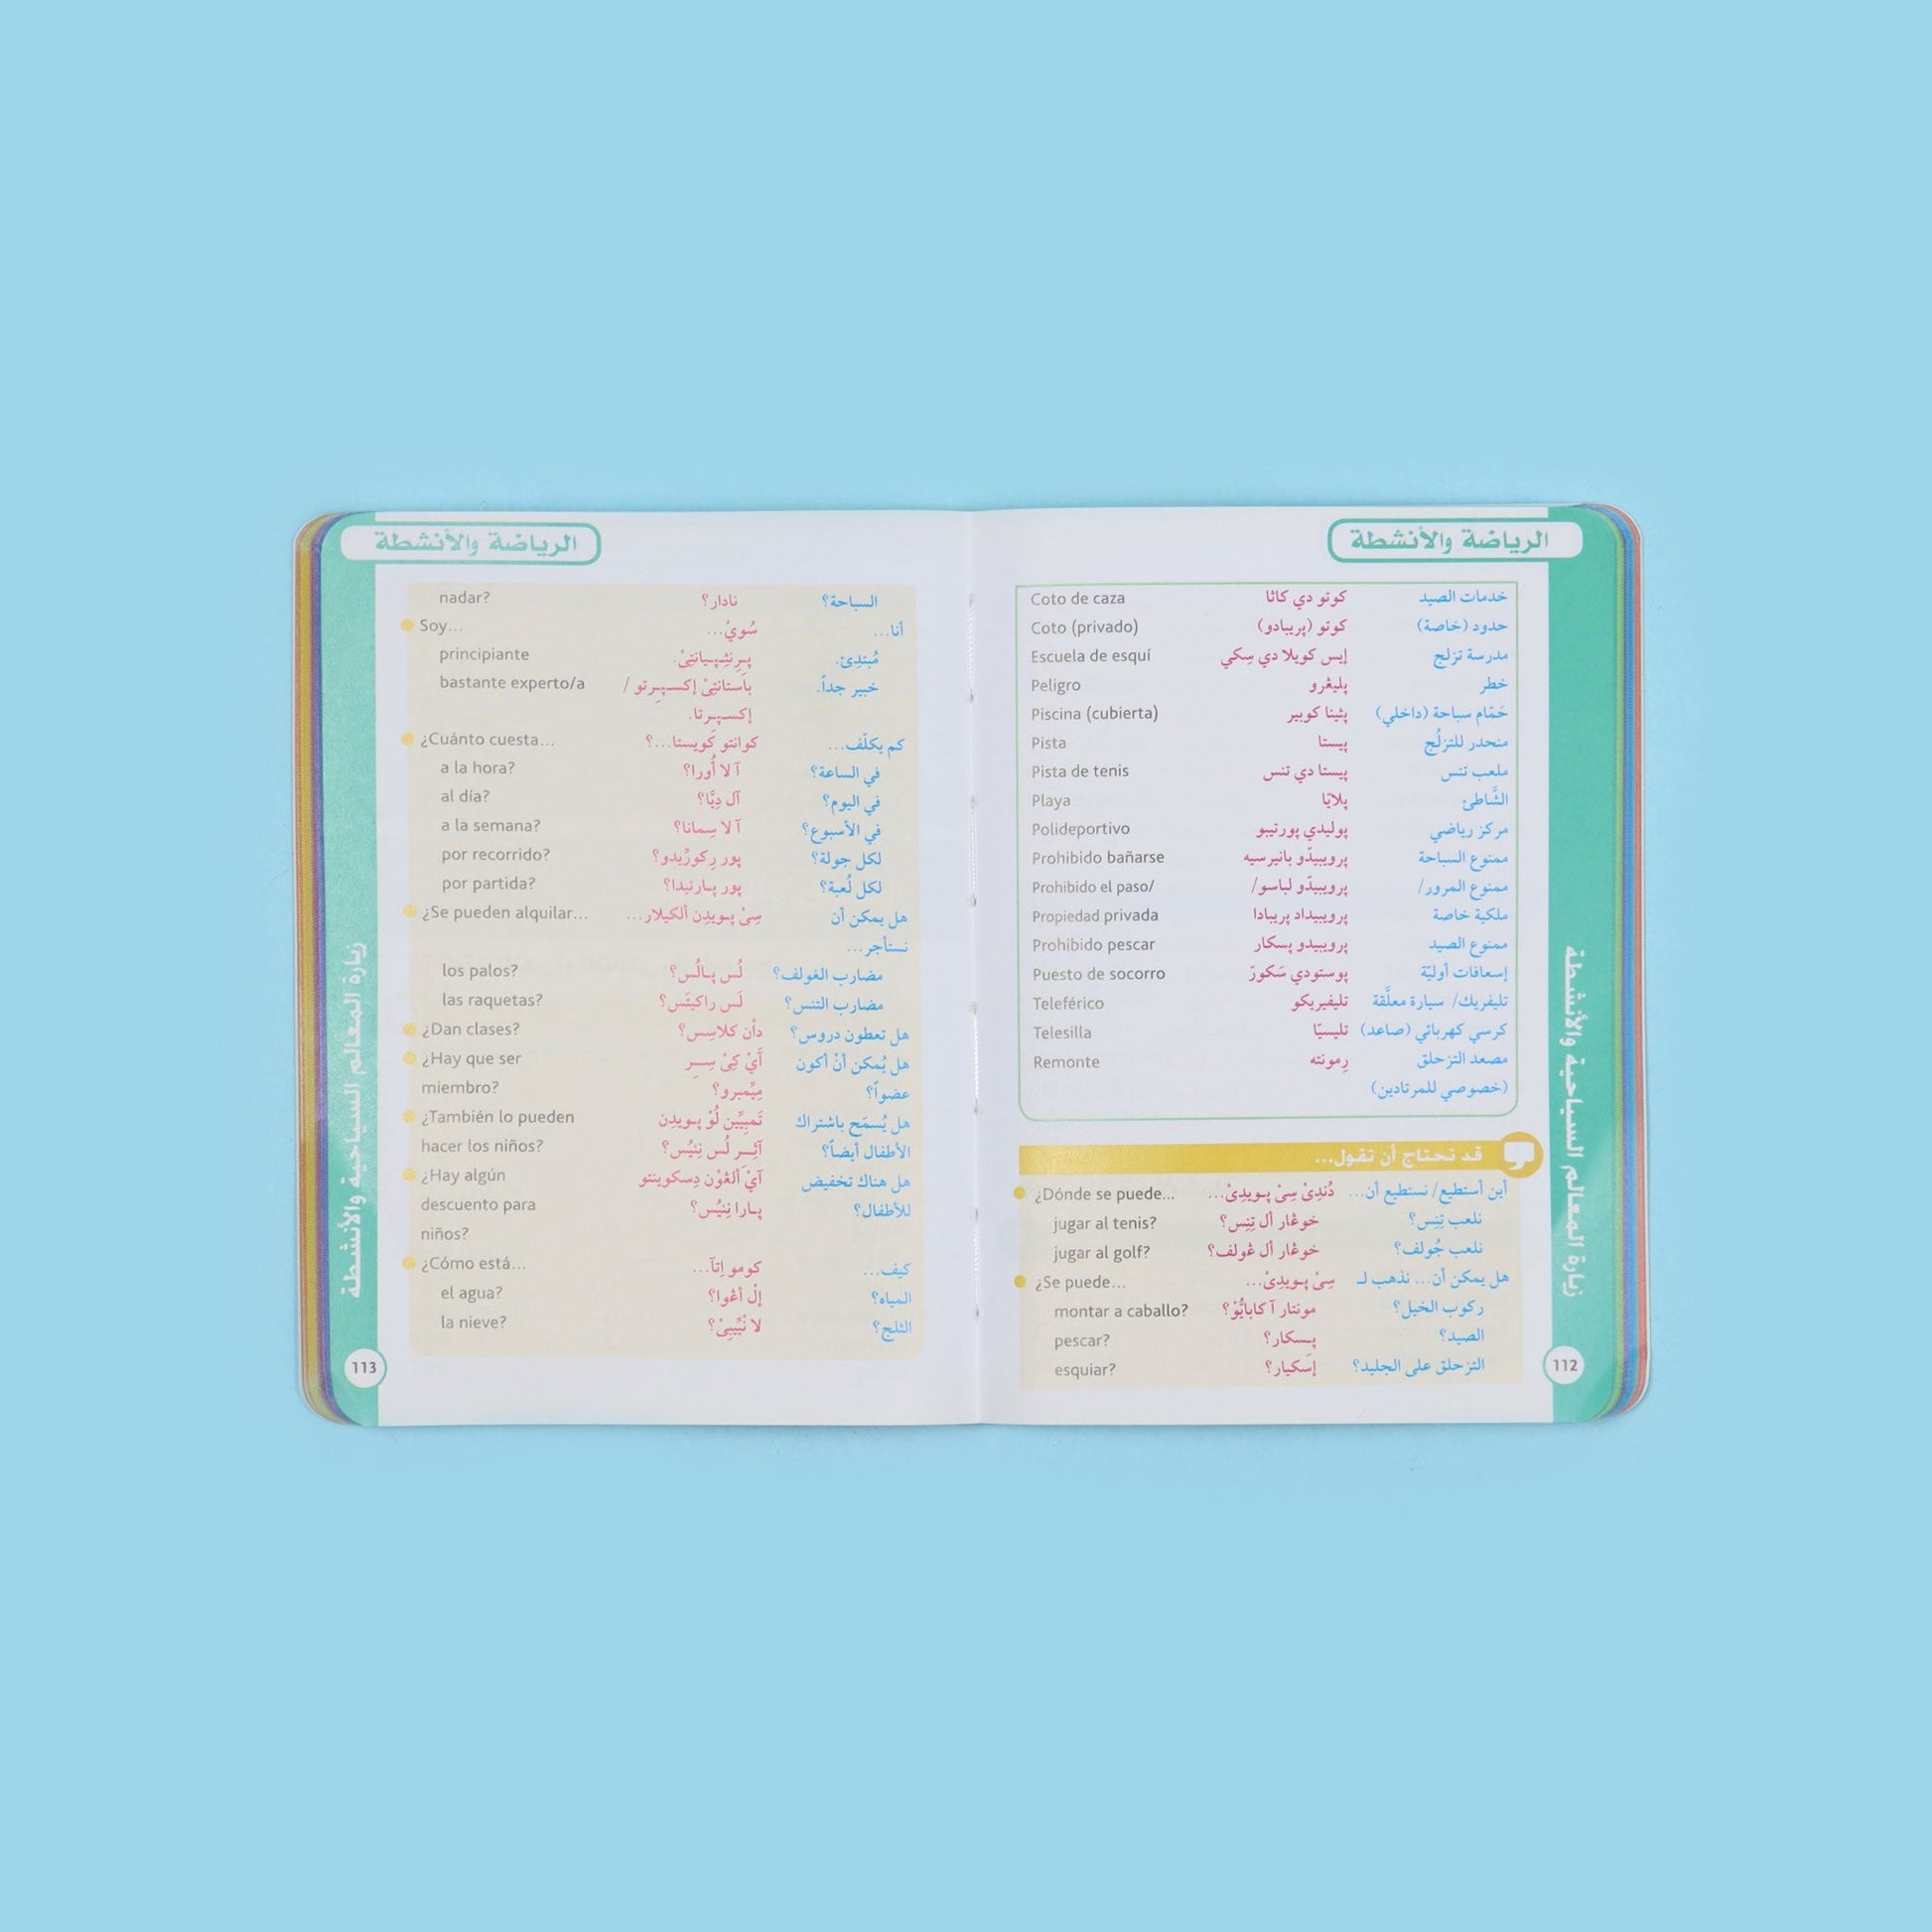 الرياضة والأنشطة
خدمات الصيد كوتو دي كاثا Coto de caza
حدود (خاصة) كوتو (پريبادو) Coto (privado)
مدرسة تزلج إيس كويلا دي سِكي Escuela de esquí
خطر پليڠرو Peligro
حَمّام سباحة (داخلي) پثينا كوبير Piscina (cubierta)
منحدر للتزلُج پيستا Pista
ملعب تنس پيستا دي تنس Pista de tenis
الشَّاطئ پلايّا Playa
مركز رياضي پوليدي پورتيبو Polideportivo
ممنوع السباحة پرويبيدّو بانيرسيه Prohibido bañarse
ممنوع المرور/ پرويبيدّو لباسو/ Prohibido el paso/
ملكية خاصة پروبيداد پريبادا Propiedad privada
ممنوع الصيد پرويبيدو پسكار Prohibido pescar
إسعافات أوليّة پوستودي سَكورّ Puesto de socorro
تليفريك/ سيارة معلَّقة تليفيريكو Teleférico
كرسي كهربائي (صاعد) تليسيّا Telesilla
مصعد التزحلق رِمونته Remonte
(خصوصي للمرتادين)
قد تحتاج أن تقول...
أين أستطيع/ نستطيع أن... دُندِىْ سِىْ پـويدِىْ... ¿Dónde se puede...
نلعب تِنِس؟ خوڠار أل تِنِس؟ jugar al tenis?
نلعب جُولف؟ خوڠار أل ڠولف؟ jugar al golf?
هل يمكن أن... نذهب لـ سِىْ پـويدِىْ... ¿Se puede...
ركوب الخيل؟ مونتار آ كابايُّوْ؟ montar a caballo?
الصيد؟ پـِسكار؟ pescar?
التزحلق على الجليد؟ إسكيار؟ esquiar?
زيارة المعالم السياحية والأنشطة
112
الرياضة والأنشطة
السباحة؟ نادار؟ nadar?
أنا... سُويْ... Soy...
مُبتدِئ. پـرِنثِـپـيانتِىْ. principiante
خبير جداً. باستانتِىْ إكسـپـِرتو / bastante experto/a
إكسـپـِرتا.
كم يكلّف... كوانتو كويستا...؟ ¿Cuánto cuesta...
في الساعة؟ آ لا أُورا؟ a la hora?
في اليوم؟ آل دِيَّا؟ al día?
في الأسبوع؟ آ لا سِمانا؟ a la semana?
لكل جولة؟ پور رِكورِّيدو؟ por recorrido?
لكل لُعبة؟ پور پـارتيدا؟ por partida?
هل يمكن أن سِىْ پـويدِن ألكيلار... ¿Se pueden alquilar...
نستأجر...
مضارب الغولف؟ لُس پـالُس؟ los palos?
مضارب التنس؟ لَس راكيتَس؟ las raquetas?
هل تعطون دروس؟ دأن كلاسِس؟ ¿Dan clases?
هل يُمكن أنْ أكون آيْ كِىْ سِـر ¿Hay que ser
عضواً؟ مِيِّمبرو؟ miembro?
هل يُسمَح باشتراك تَمبِيِّين لُوْ پـويدِن ¿También lo pueden
الأطفال أيضاً؟ آثِـر لُس نِنيُس؟ hacer los niños?
هل هناك تخفيض آيْ ألڠوْن دِسكوينتو ¿Hay algún
للأطفال؟ پـارا نِنيُس؟ descuento para
niños?
كيف... كومو اِتآ... ¿Cómo está...
المياه؟ إلْ أڠوا؟ el agua?
الثلج؟ لا نْيِّبِىْ؟ la nieve?
زيارة المعالم السياحية والأنشطة
113